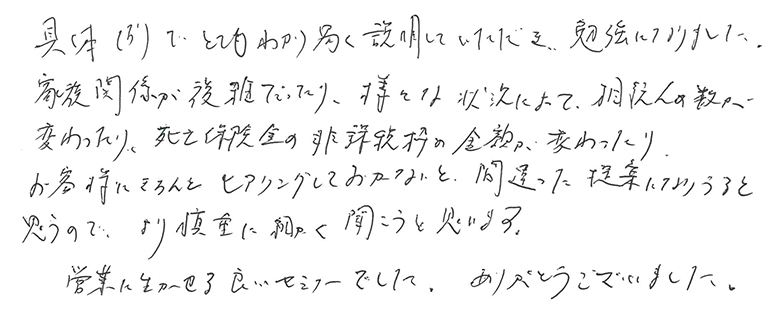 具体例でとてもわかり易く説明していただき、勉強になりました。
家族関係が複雑だったり、様々な状況によって、相続人の数が
変わったり、死亡保険金の非課税枠の金額が、変わったり
お客様にきちんとヒアリングしておかないと、間違った提案になりうると
思うので、より慎重に細かく聞こうと思います。
営業に生かせる良いセミナーでした。ありがとうございました。